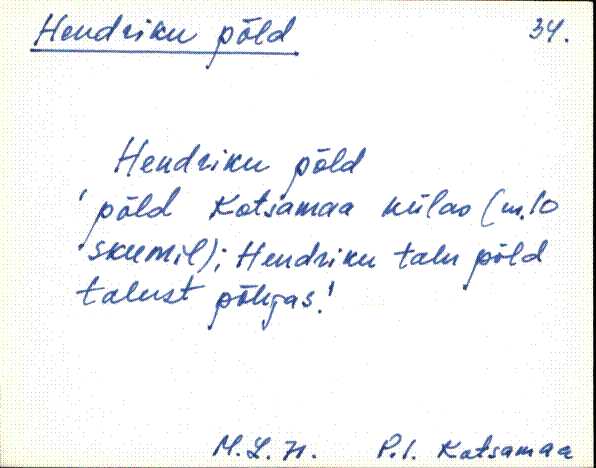 Hendriku põld 34.
Hendriku põld
'põld Kotsamaa külas (m.10
skumil); Hendriku talu põld
talust põhjas.'
M.L.H. P.I. Kotsamaa